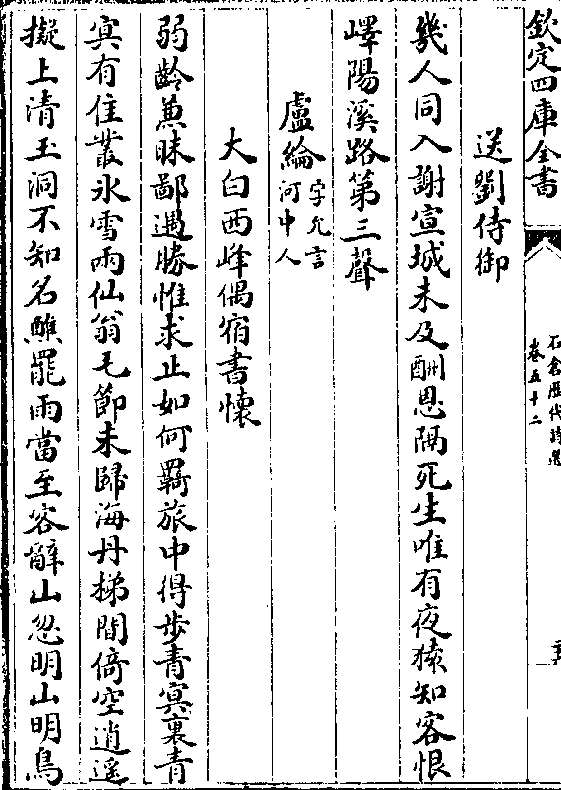 欽定四庫全書
石倉歷代詩選
卷五十二
送劉侍御
幾人同入謝宣城未及酬恩隔死生唯有夜猿知客恨
嶧陽溪路第三聲
盧綸字允言河中人
大白西峰偶宿書懷
弱齡兼昧鄙遇勝惟求止如何羈旅中得步青冥裏青
冥有住叢氷雪雨仙翁毛節未歸海丹梯閒倚空逍遥
擬上清玉洞不知名醮罷雨當至客辭山忽明山明鳥